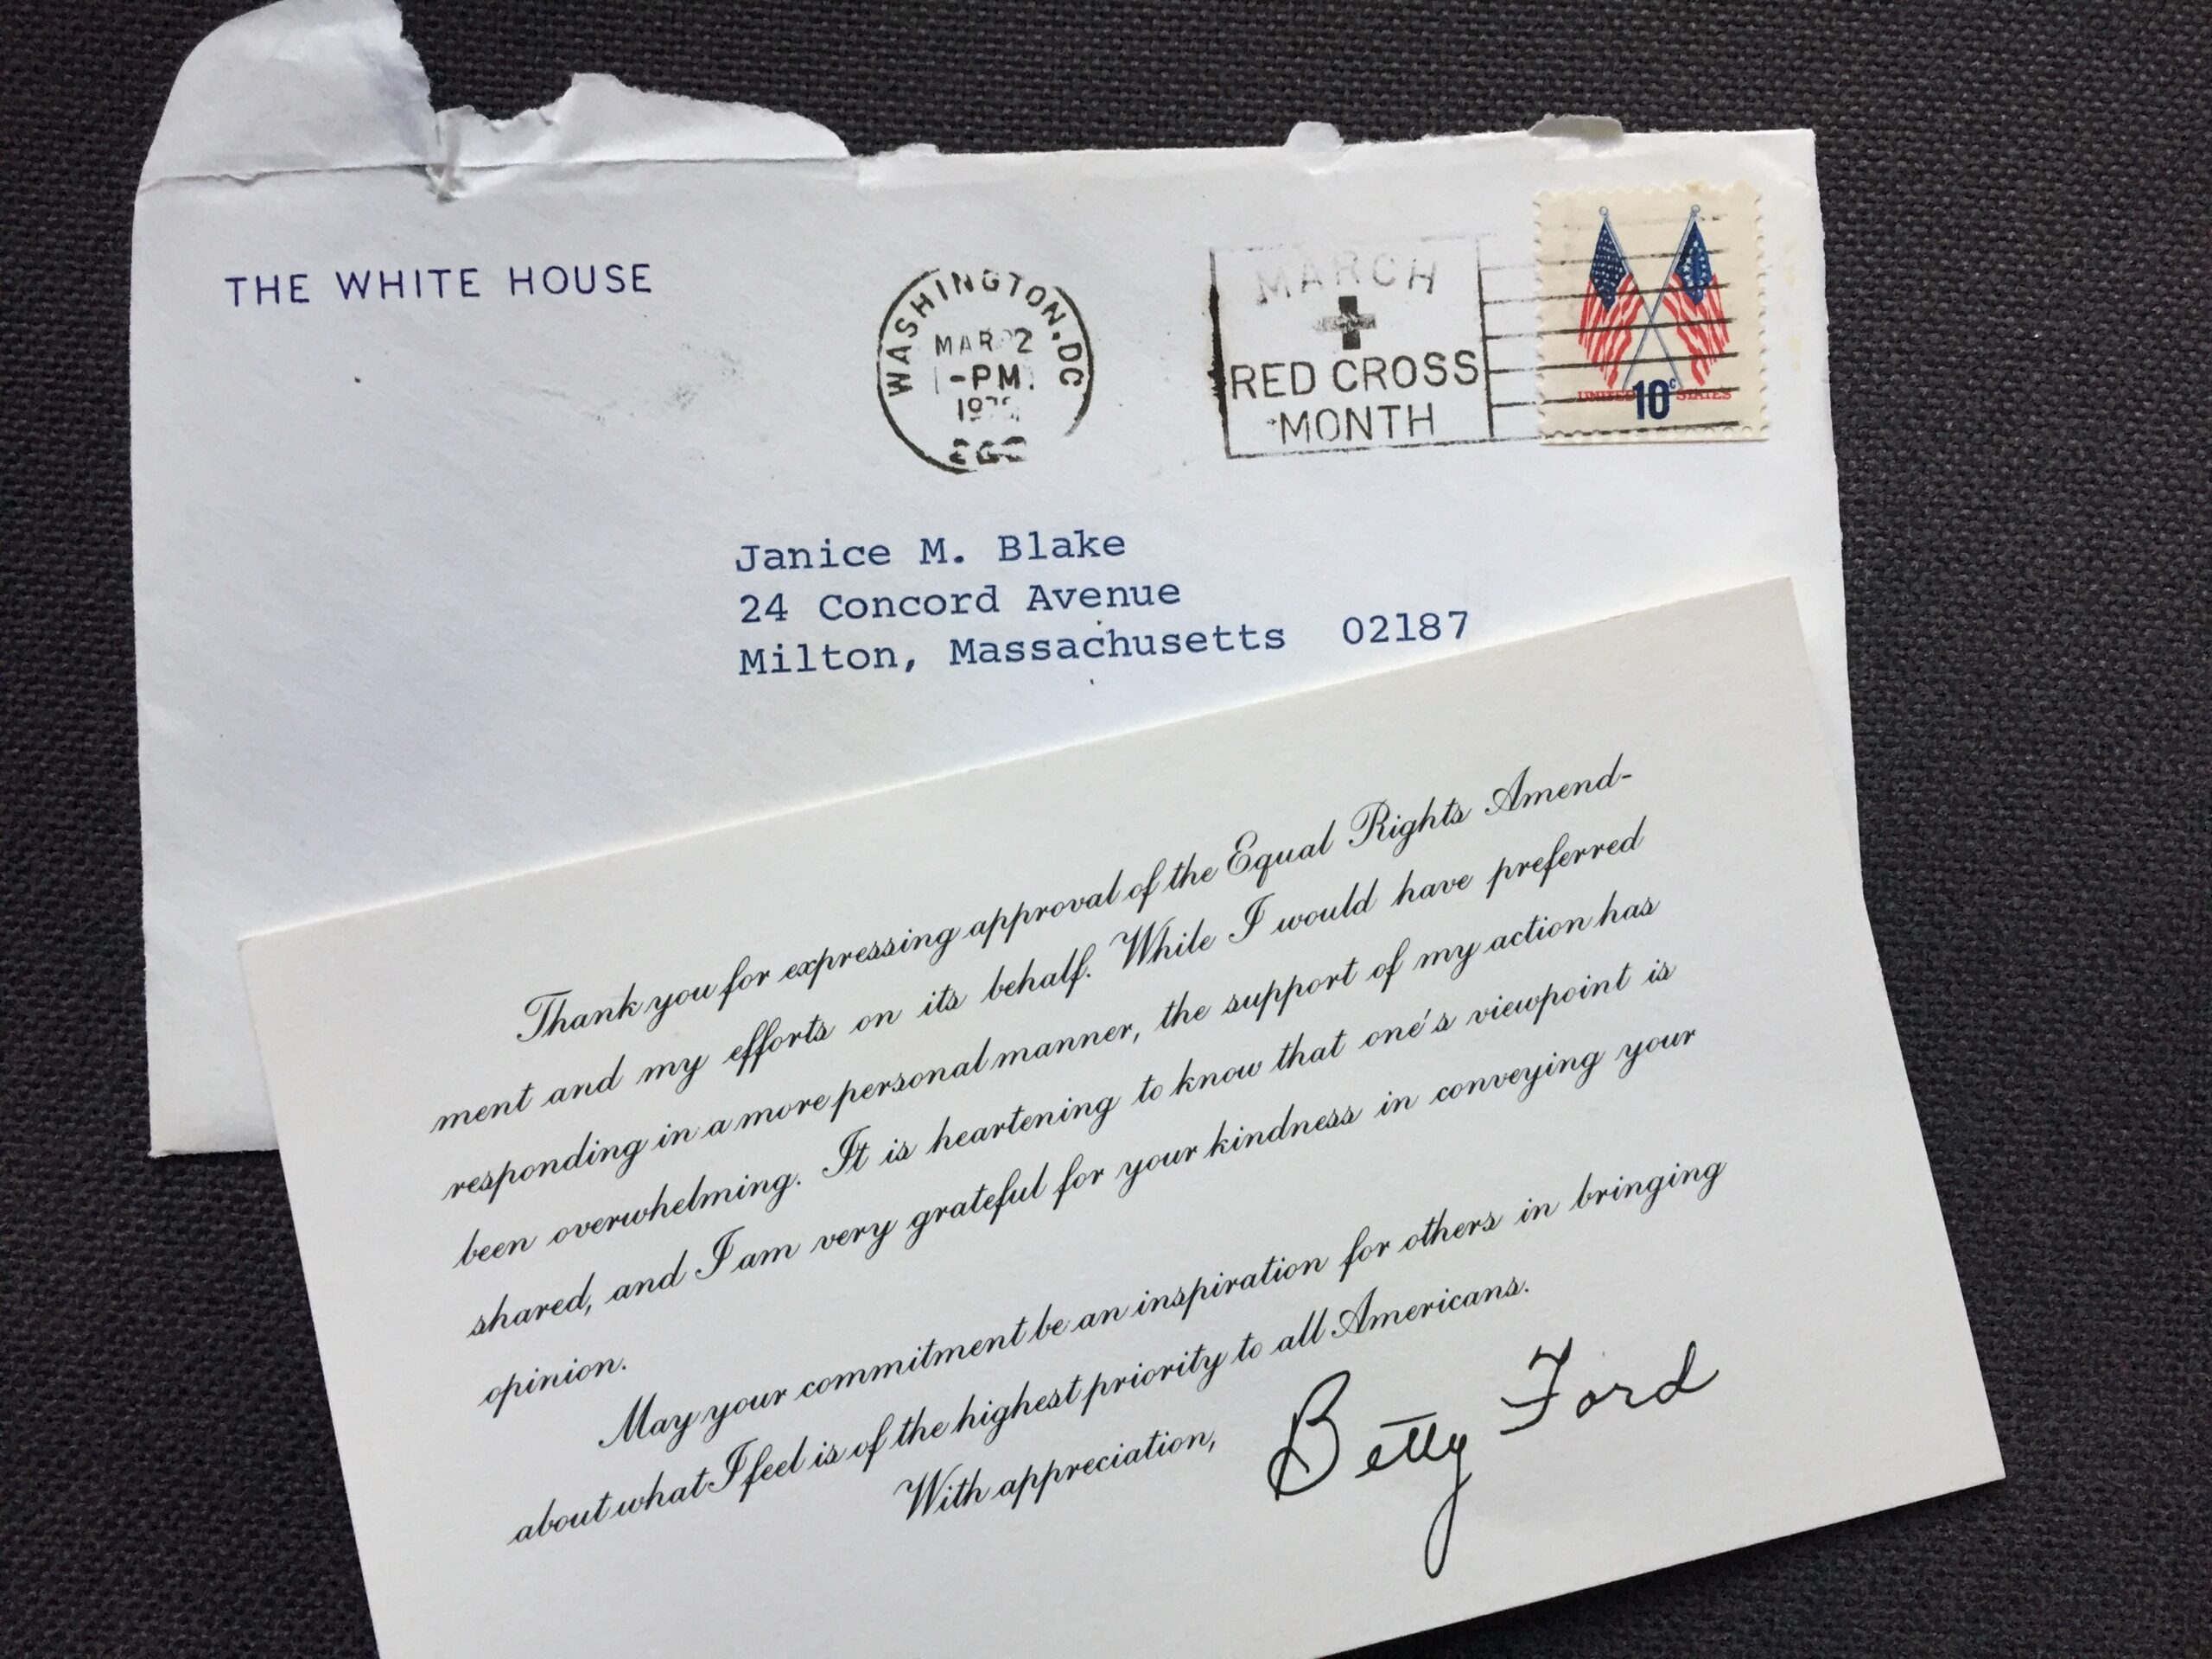 THE WHITE HOUSE
WASHINGTON, DC
MAR 2
-PM.
MARCH
RED CROSS
MONTH
UNITED 10c STATES
Janice M. Blake
24 Concord Avenue
Milton, Massachusetts 02187
Thank you for expressing approval of the Equal Rights Amend-
ment and my efforts on its behalf. While I would have preferred
responding in a more personal manner, the support of my action has
been overwhelming. It is heartening to know that one's viewpoint is
shared, and I am very grateful for your kindness in conveying your
opinion.
May your commitment be an inspiration for others in bringing
about what I feel is of the highest priority to all Americans.
With appreciation,
Betty Ford